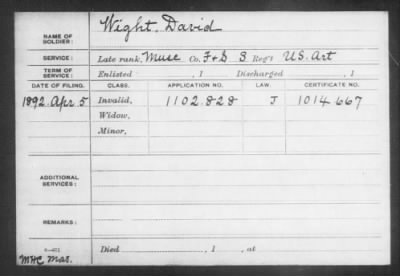 NAME OF SOLDIER: Wight, David
SERVICE: Late rank, Musc Co. F+S 3 Reg't U.S. Art
TERM OF SERVICE: Enlisted , 1 Discharged , 1
DATE OF FILING. CLASS. APPLICATION NO. LAW. CERTIFICATE NO.
1892. Apr 5 Invalid, 1102.828 J 1014.667
Widow,
Minor,
ADDITIONAL SERVICES:
REMARKS:
Died , 1 , at